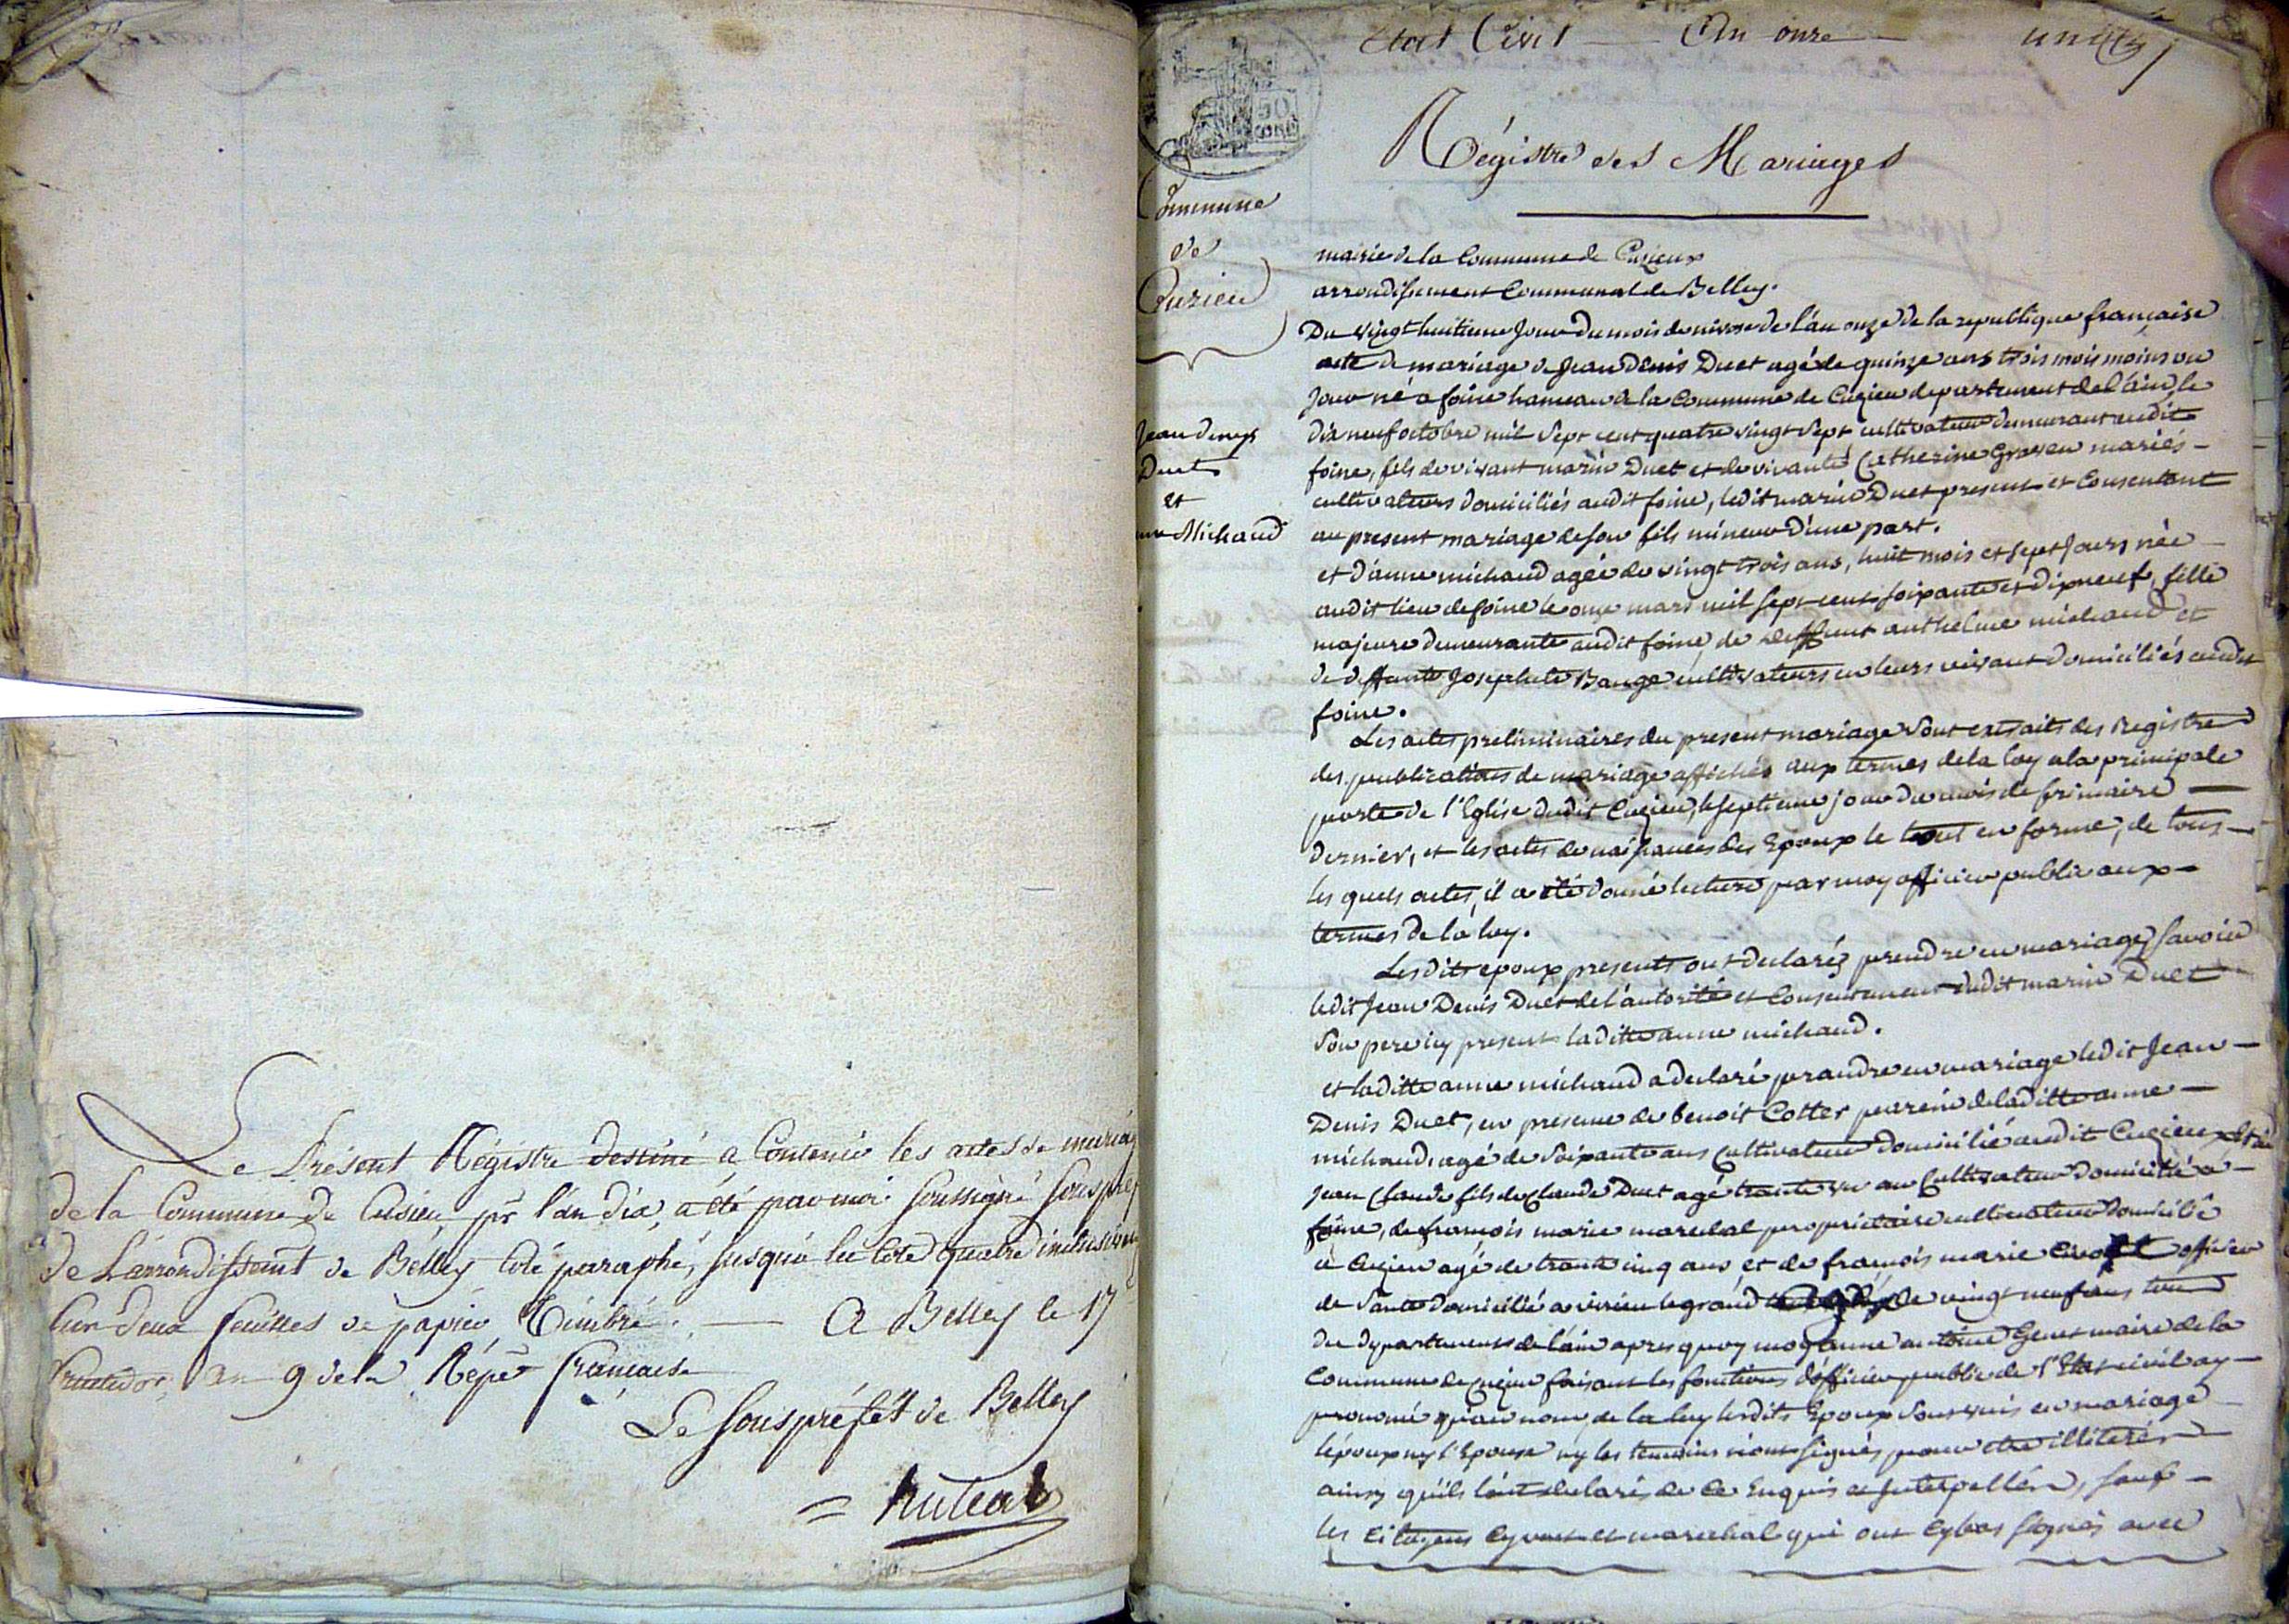 Le Présent Régistre destiné a Contenir les actes de mariag
de la Commune de Cusieu pr l'an dix, a été par moi soussigné sous pref
de L'arrondissemt de Belley coté paraphé, jusqu'a la cote quatre inclusivem
sur deux feuilles de papier Timbré. — A Belley le 17
fructidor, an 9 de la Répe française
Le souspréfét de Belley
Etat Civil — An onze —
50
Régistre des Mariages
Commune
de
Cuzieu
Jean denys
Duet
et
Michaud
mairie de la Commune de Cuzieux
arrondissement Communal de Belley.
Du vingt huitieme Jour du mois de nivose de l'an onze de la republique française
acte de mariage de Jean Denis Duet agé de quinze ans trois mois moins un
Jour né a foine hameau de la Commune de Cuzieu departement de l'ain, le
dix neuf octobre mil sept cent quatre vingt sept cultivateur demeurant audit
foine, fils de vivant marin Duet et de vivante Catherine Graven mariés -
cultivateurs domiciliés audit foine, ledit marin Duet present et Consentant
au present mariage de son fils mineur d'une part.
et d'anne michaud agée de vingt trois ans, huit mois et sept Jours née
audit lieu de foine le onze mars mil sept cent soixante et dix neuf, fille
majeure demeurante audit foine, de deffunt anthelme michaud et
de deffunte Josephete Bauge cultivateurs en leurs vivant domiciliés audit
foine.
Les actes preliminaires du present mariage sont extraits des Registre
des publications de mariage affichés aux termes de la loy a la principale
porte de l'Eglise dudit Cuzieu, le septieme jour du mois de frimaire —
dernier, et les actes de naissances des Epoux le tout en forme, de tous —
les quels actes, il a été donné lecture par moy officier public aux —
termes de la loy.
Lesdits epoux presents ont declarés prendre en mariage, savoir
ledit Jean Denis Duet de l'autorité et Consentement dudit marin Duet
son pere icy present laditte anne michaud.
et laditte anne michaud a declaré prandre en mariage ledit Jean —
Denis Duet, en presence de benoit Cotter de laditte anne —
michaud, agé de soixante ans Cultivateur domicilié audit Cuzieu
Jean Claude fils de Claude Duet agé trante un an Cultivateur domicilié a —
foine, de françois marie marechal proprietaire cultivateur domicilié
a Cuzieu agé de trante cinq ans et de françois marie officier
de santé domicilié a virieu le grand de vingt neuf ans tous
du departement de l'ain apres quoy moy antoine Genet maire de la
Commune de Cuzieu faisant les fonctions d'officier public de l'Etat civil ay —
prononcé qu'au nom de la loy lesdits Epoux sont unis en mariage
l'époux ny l'Epouse ny les temoins n'ont signés pour etre illiterés
ainsy qu'ils l'ont declarés de ce Enquis et Interpellés, sauf —
les citoyens et marechal qui ont cy bas signés avec